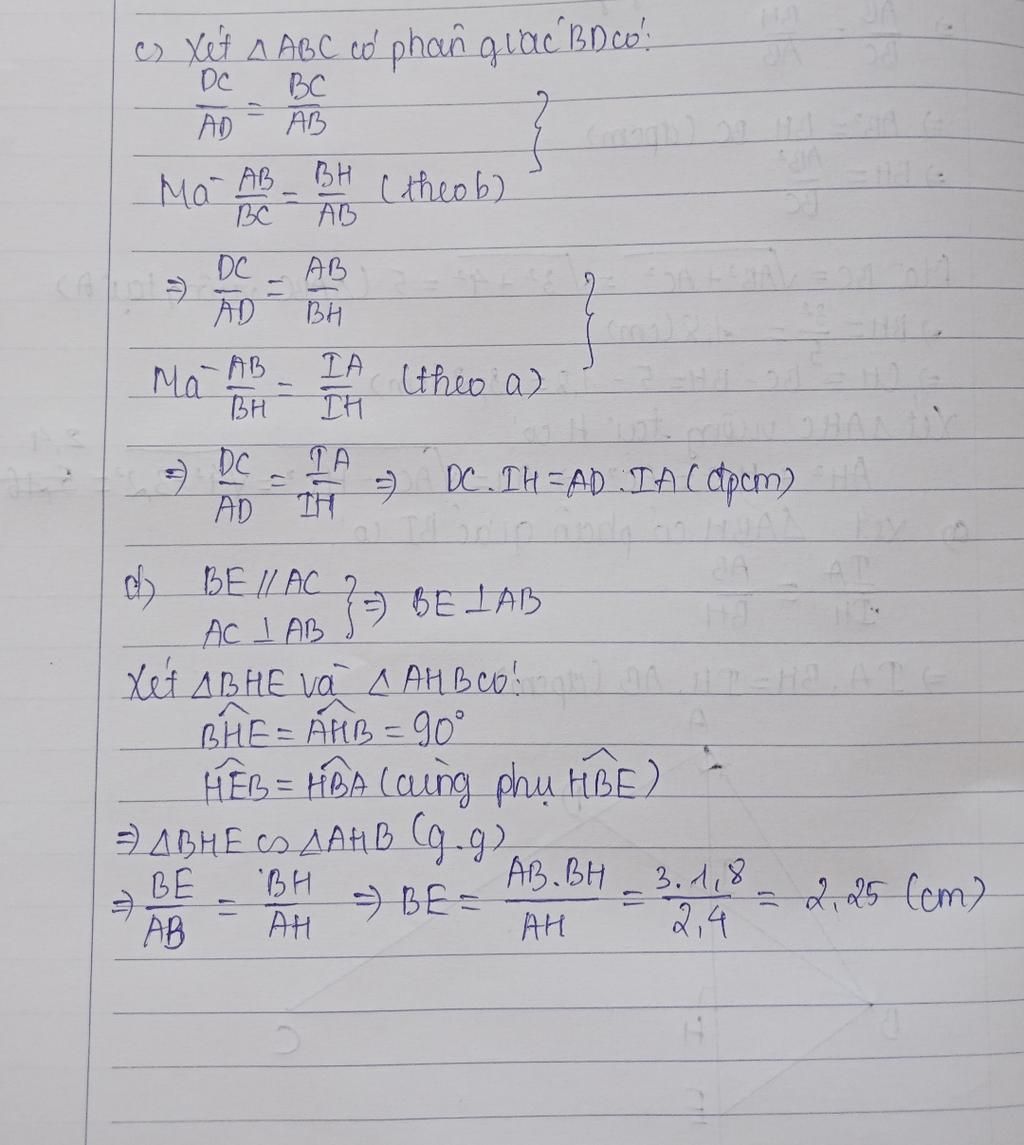 c) Xét △ABC có phân giác BD có:
DC/AD = BC/AB
Mà AB/BC = BH/AB (theo b)
⇒ DC/AD = AB/BH
Mà AB/BH = IA/IH (theo a)
⇒ DC/AD = IA/IH ⇒ DC.IH = AD.IA (đpcm)
d) BE // AC
AC ⊥ AB } ⇒ BE ⊥ AB
Xét △BHE và △AHB có:
BHE = AHB = 90°
HEB = HBA (cùng phụ HBE)
⇒ △BHE ∽ △AHB (g.g)
⇒ BE/AB = BH/AH ⇒ BE = AB.BH/AH = 3.1,8/2,4 = 2,25 (cm)